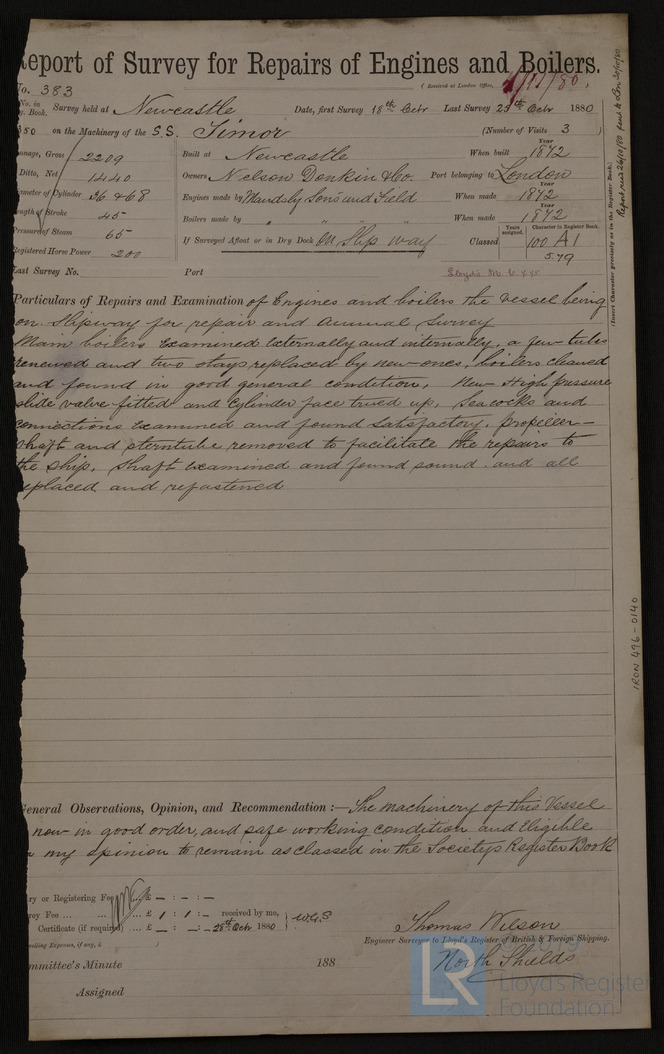 Report of Survey for Repairs of Engines and Boilers.
No. 383 (Received at London Office, 1/11/80.
No. in Reg. Book. Survey held at Newcastle Date, first Survey 18th Octr Last Survey 25th Octr 1880
350 on the Machinery of the S.S. Timor (Number of Visits 3 )
Tonnage, Gross 2209 Built at Newcastle When built Year 1872
Ditto, Net 1440 Owners Nelson Donkin & Co. Port belonging to London
Diameter of Cylinder 36 & 68 Engines made by Maudslay Sons and Field When made Year 1872
Length of Stroke 45 Boilers made by " " " When made 1872
Pressure of Steam 65 If Surveyed Afloat or in Dry Dock On Slip way Classed Years assigned. Character in Register Book. 100 A1
Registered Horse Power 200 5.79
Last Survey No. Port Lloyd's M.C.
Particulars of Repairs and Examination of Engines and boilers the vessel being
on Slipway for repair and annual survey
Main boilers examined externally and internally, a few tubes
renewed and two stays replaced by new ones, boilers cleaned
and found in good general condition. New High pressure
slide valve fitted and cylinder face trued up. Seacocks and
connections examined and found satisfactory. propeller-
shaft and sterntube removed to facilitate the repairs to
the ship. Shaft examined and found sound and all
replaced and refastened
General Observations, Opinion, and Recommendation :— The machinery of this Vessel
now in good order, and safe working condition and Eligible
in my opinion to remain as classed in the Society's Register Book
Entry or Registering Fee £ — : — : —
Survey Fee ... ... £ 1 : 1 : — received by me, W.G.S
Certificate (if required) ... £ — : — : — 28th Octr 1880
(Travelling Expenses, if any, £ )
Thomas Wilson
Engineer Surveyor to Lloyd's Register of British & Foreign Shipping.
North Shields
Committee's Minute 188
Assigned
(Insert Character precisely as in the Register Book.)
Report recd 26/10/80 sent to Lon 30/10/80
IRON 496-0140
LR
Lloyd's Register
Foundation